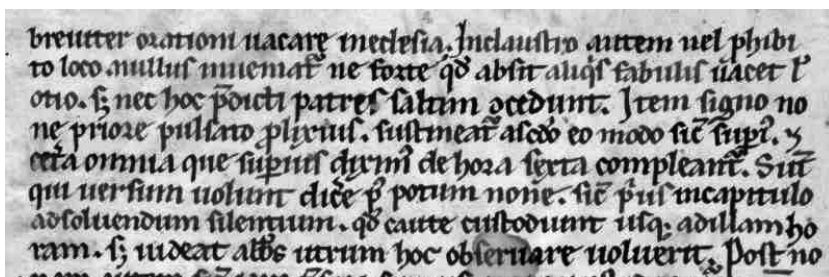 breuiter orationi uacare ineclesia. Inclaustro autem uel phibi
to loco nullus inueniat᷑ ne forte qd̄ absit aliq̓s fabulis uacet ł
otio. sꝫ nec hoc p̄dicti patres saltim ɔcedunt. Item signo no
ne priore pulsato ꝓlixius. sustineat᷑ a scđo eo modo sic̄ supi᷑. ⁊
cet̄a omnia que supius diximꝰ de hora sexta compleant᷑. Sūt
qui uersum uolunt dic̄e p᷒ potum none. sic̄ p̓us incapitulo
adsoluendum silentium. qd̄ caute custodiunt usqꝫ adillam ho
ram. sꝫ uideat abb̄s utrum hoc obseruare uoluerit. Post no